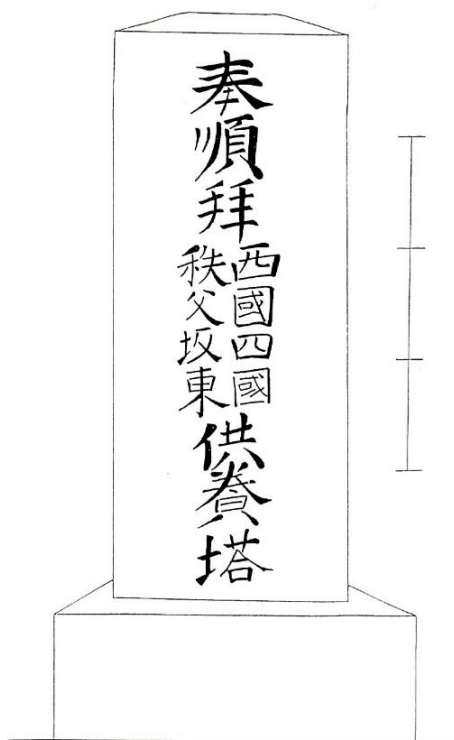 奉順拝
西國四國
秩父坂東
供養塔